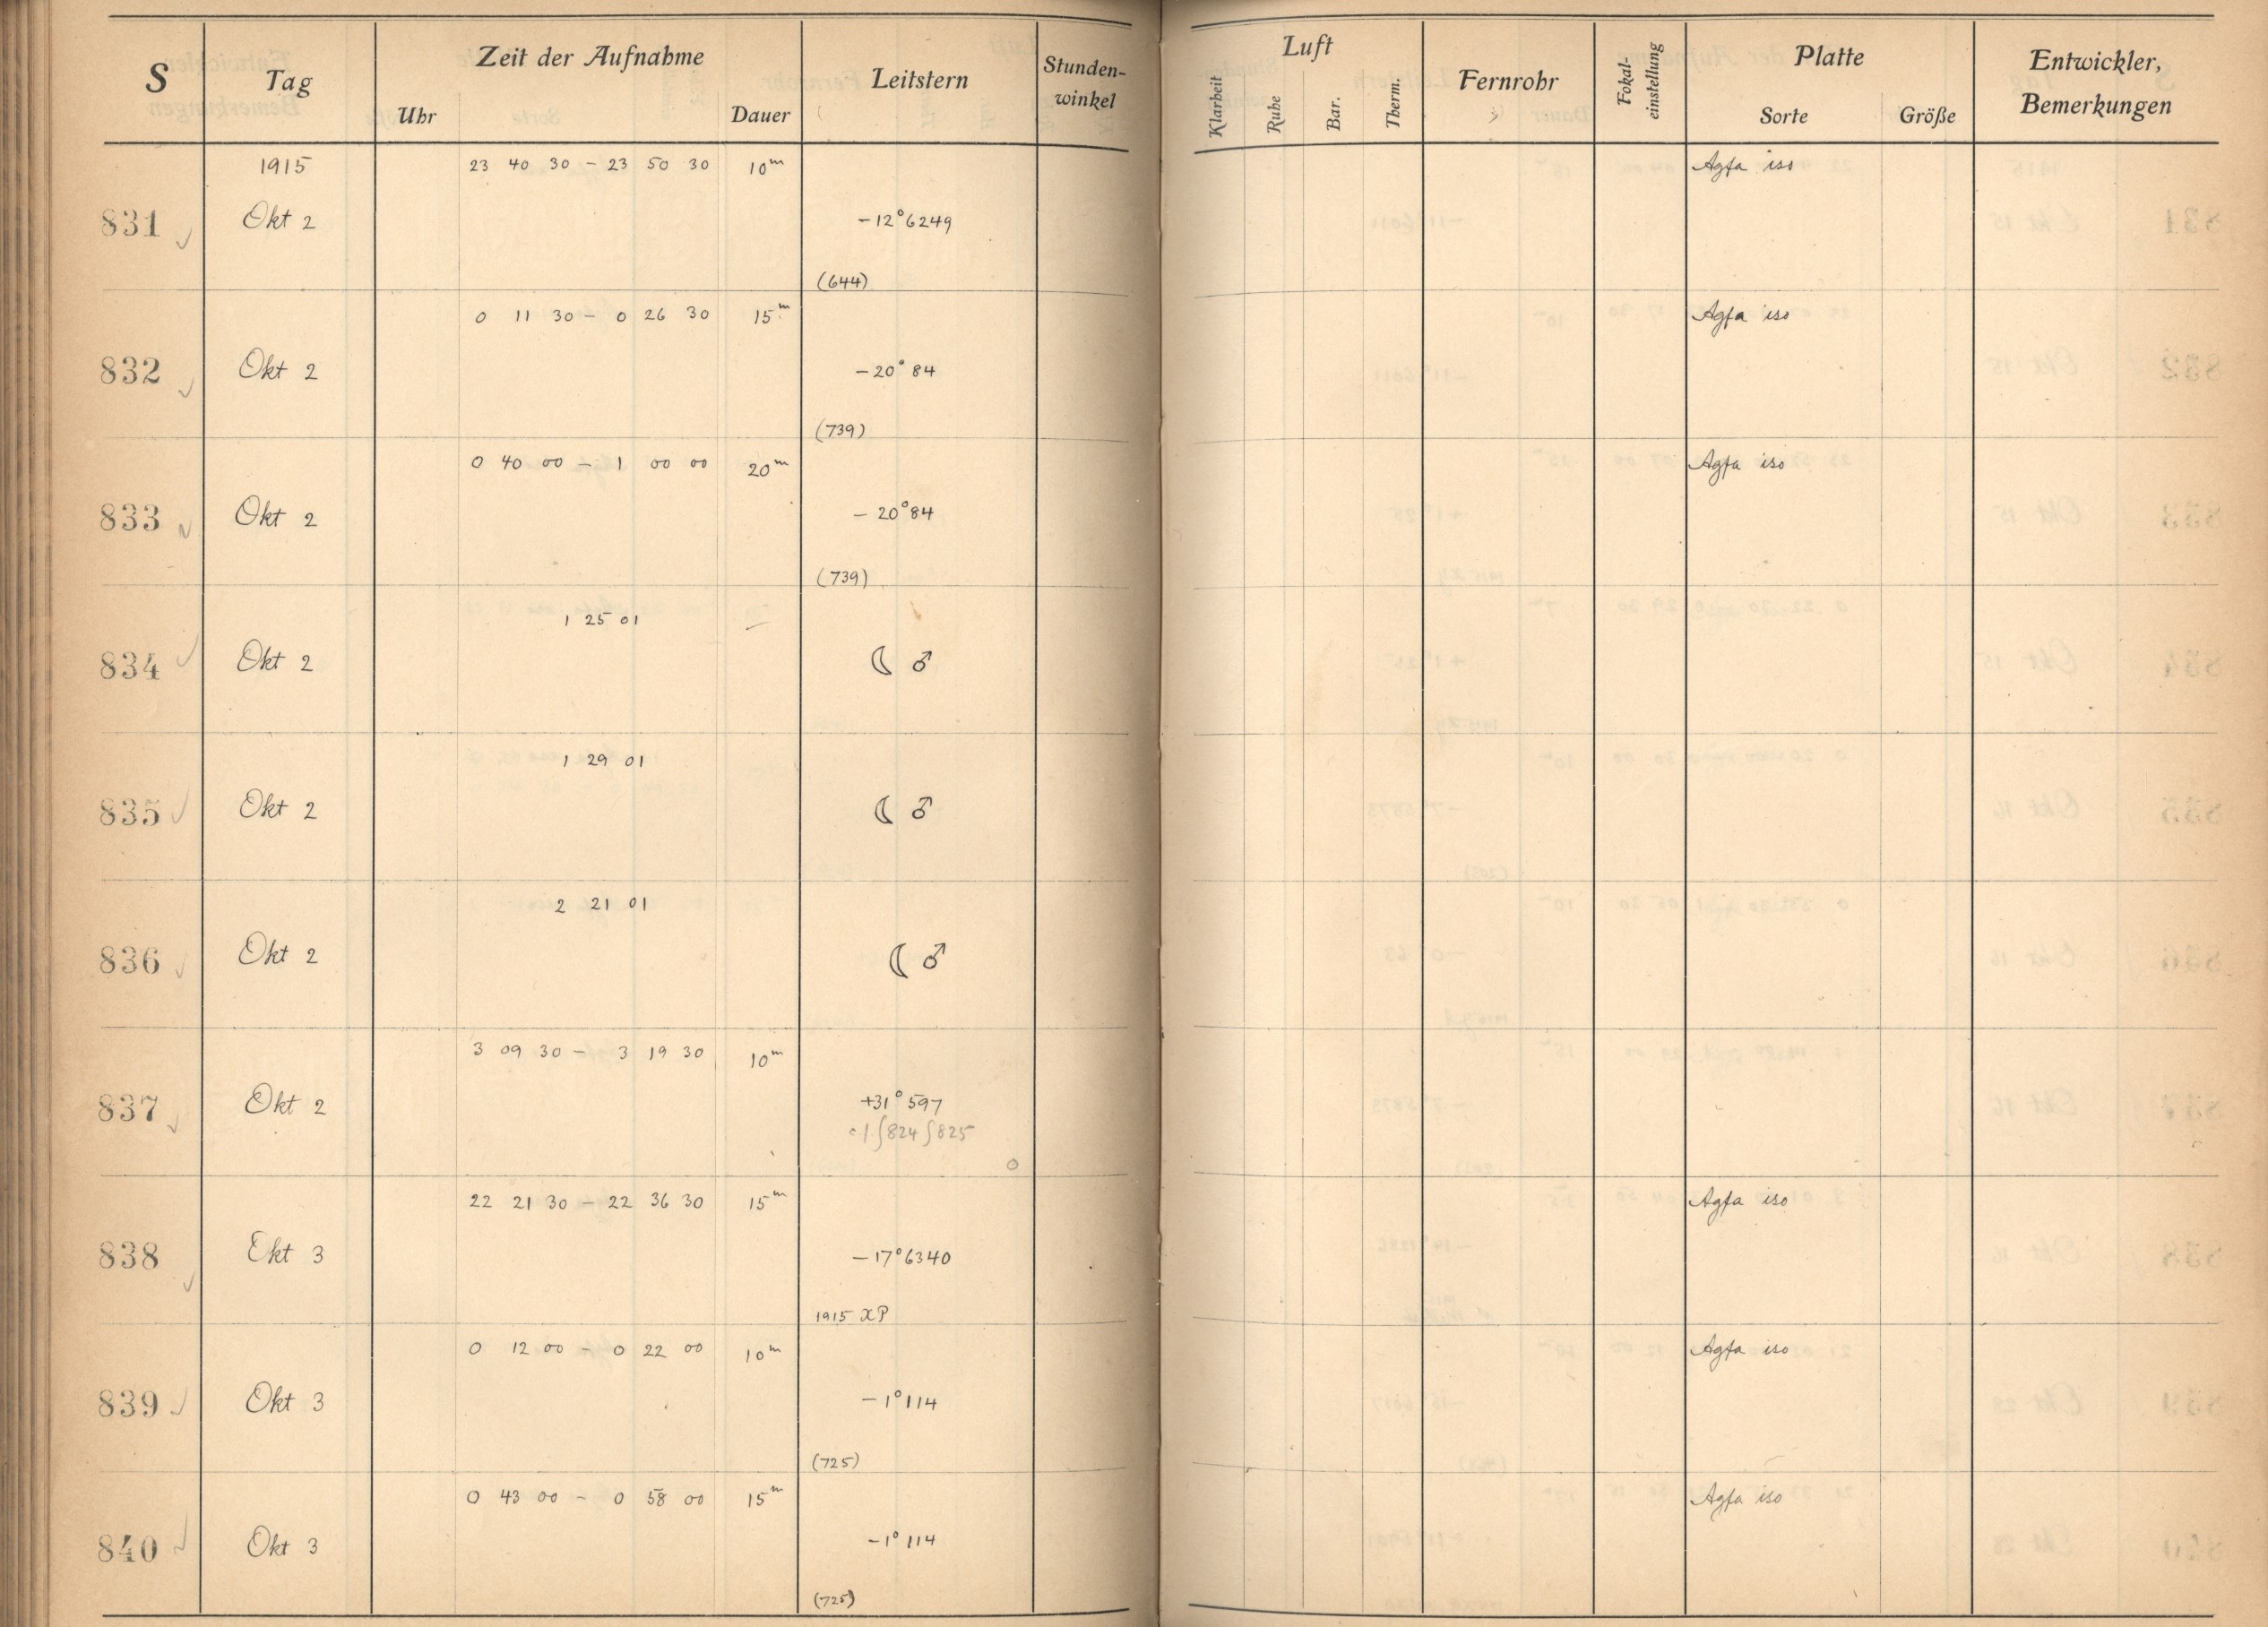 S Tag Zeit der Aufnahme Leitstern Stunden-winkel Luft Fernrohr Fokal-einstellung Platte Entwickler, Bemerkungen
Uhr Dauer Klarheit Ruhe Bar. Therm. Sorte Größe
1915 23 40 30 – 23 50 30 10m Agfa iso
831 Okt 2 –12°6249
(644)
0 11 30 – 0 26 30 15m Agfa iso
832 Okt 2 –20°84
(739)
0 40 00 – 1 00 00 20m Agfa iso
833 Okt 2 –20°84
(739)
1 25 01 –
834 Okt 2 ☾ ♂
1 29 01
835 Okt 2 ☾ ♂
2 21 01
836 Okt 2 ☾ ♂
3 09 30 – 3 19 30 10m
837 Okt 2 +31°597
824 825
22 21 30 – 22 36 30 15m Agfa iso
838 Okt 3 –17°6340
1915 XP
0 12 00 – 0 22 00 10m Agfa iso
839 Okt 3 –1°114
(725)
0 43 00 – 0 58 00 15m Agfa iso
840 Okt 3 –1°114
(725)